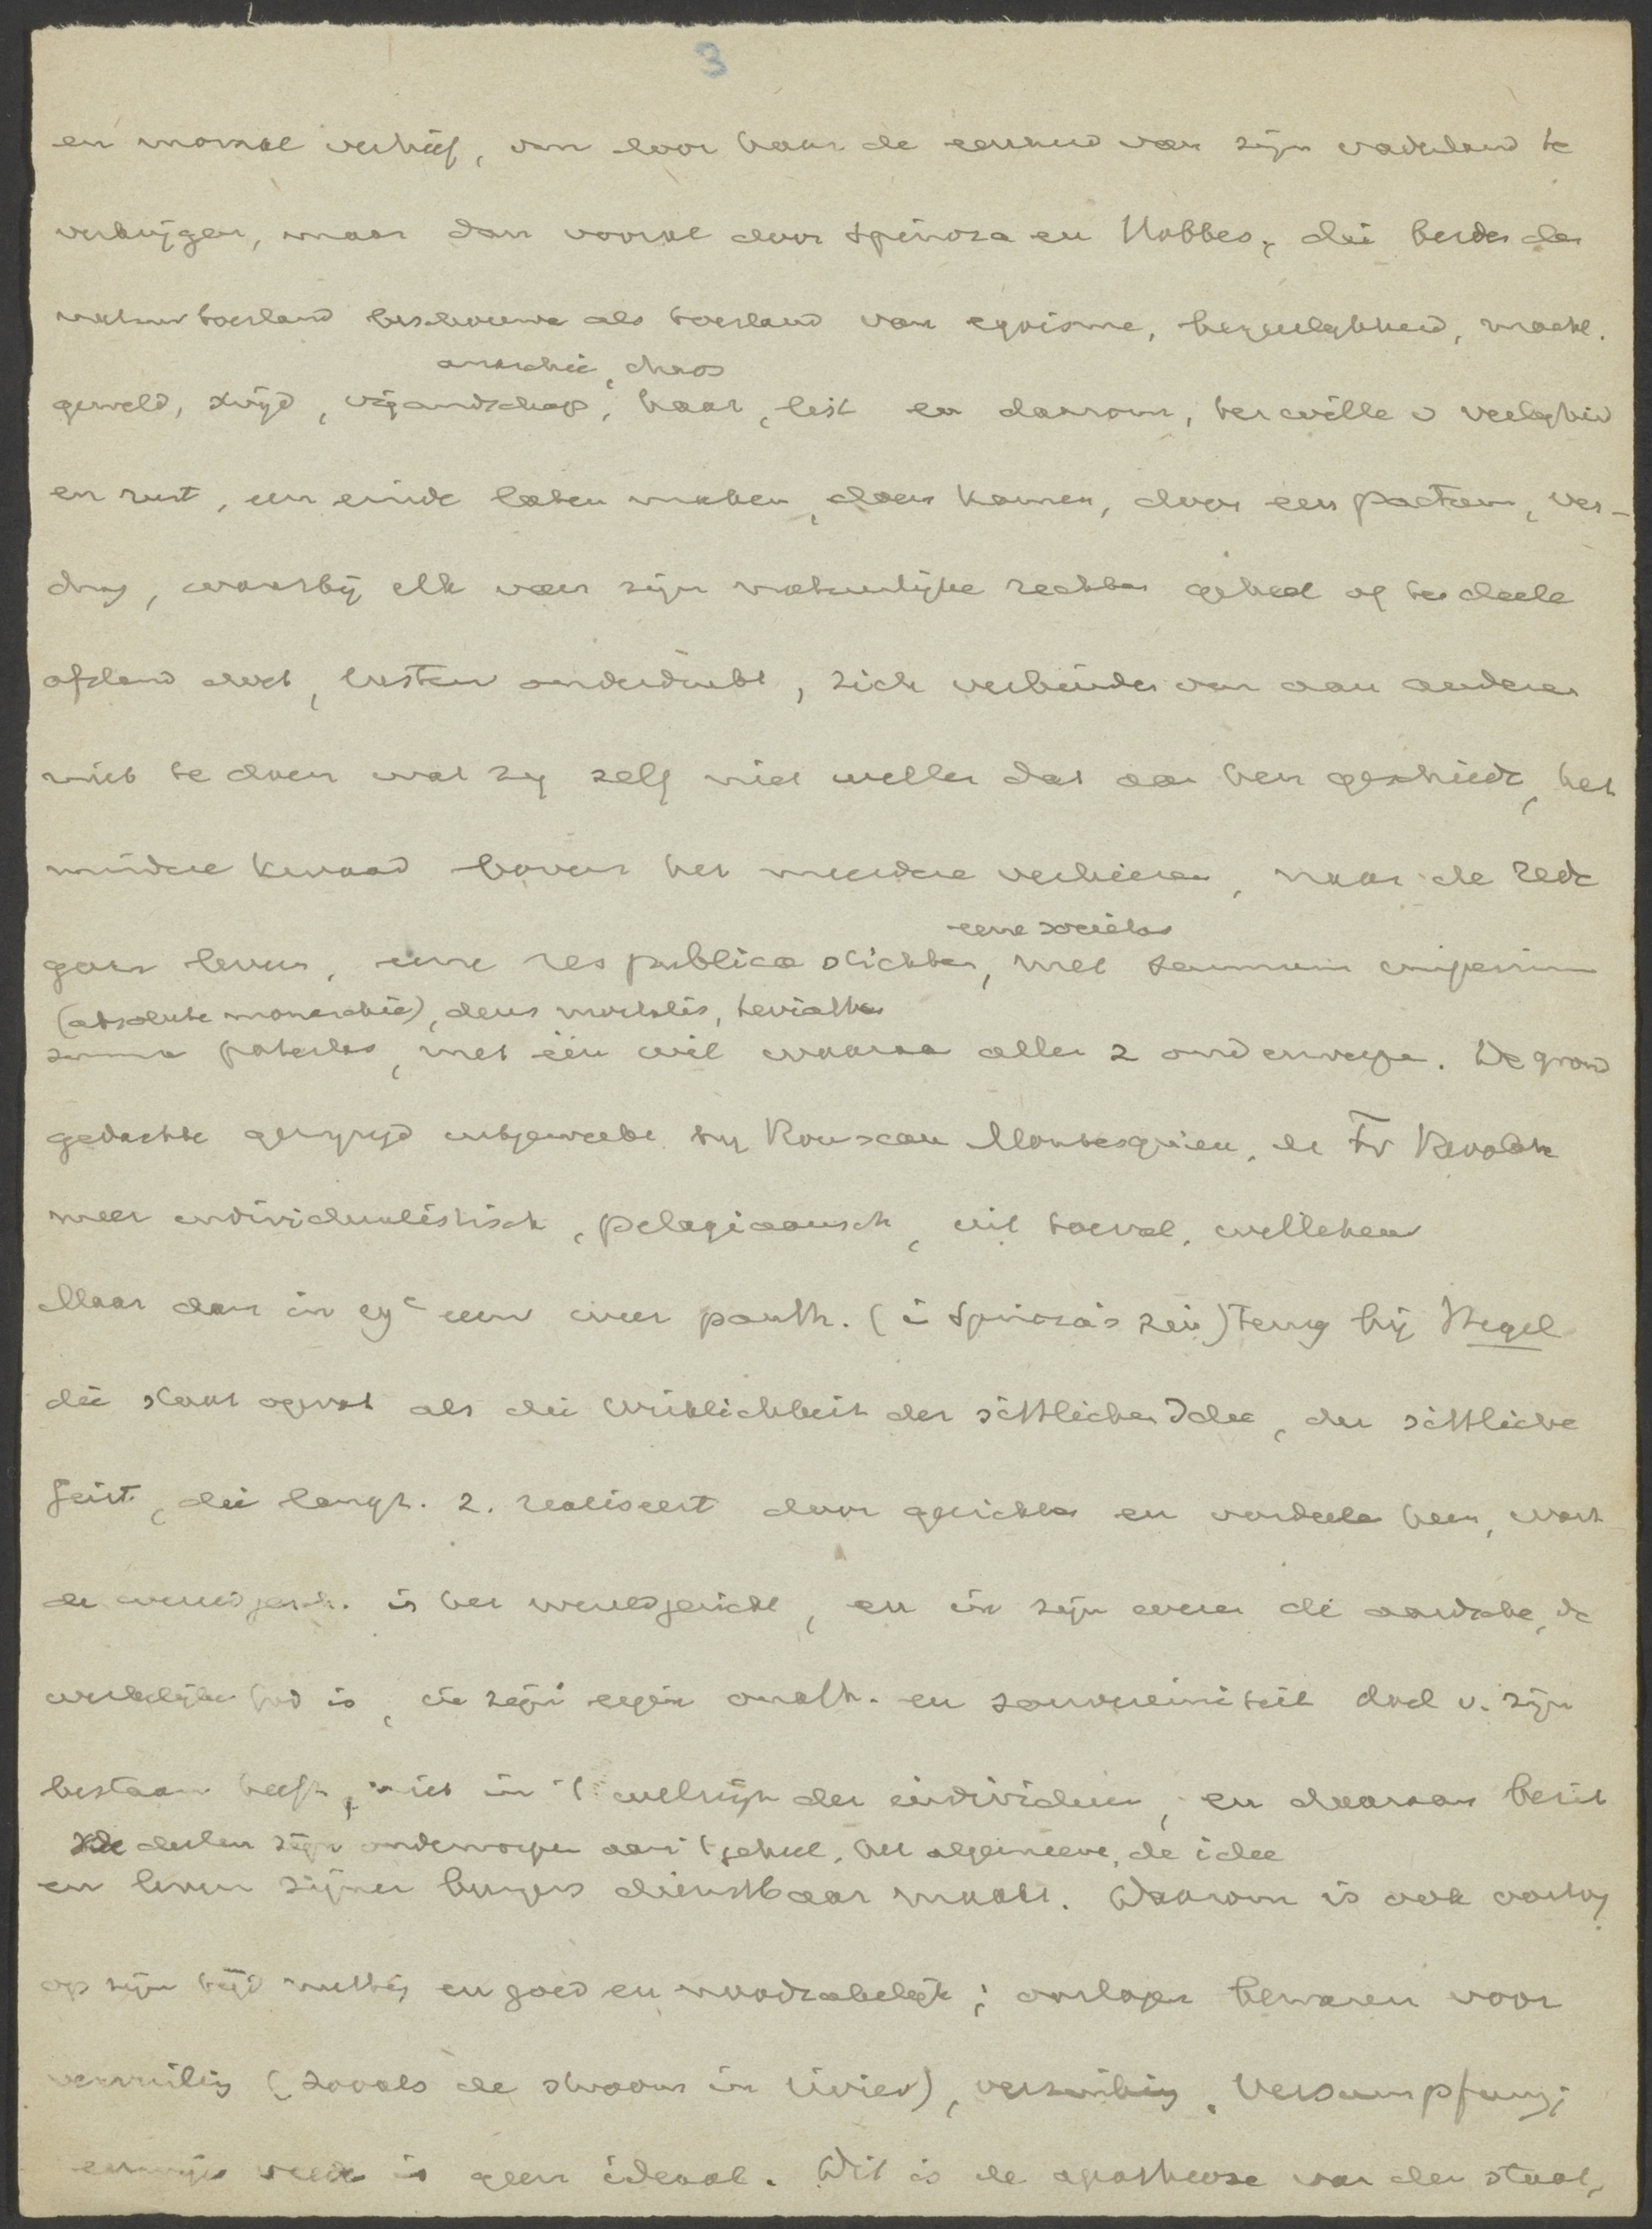 3
en moraal verhief, om door haar de eenheid van zijn vaderland te
verkrijgen, maar dan vooral door Spinoza en Hobbes, die beiden den
natuurtoestand beschouwen als toestand van egoisme, begeerlijkheid, macht.
anarchie, chaos
geweld, strijd, vijandschap, haat, list en daarom, ter wille v veiligheid
en rust, een einde laten maken, doen komen, door een pactum, ver-
drag, waarbij elk van zijn natuurlijke rechten geheel of ten deele
afstand doet, lusten onderdrukt, zich verbinden om aan anderen
niet te doen wat zij zelf niet willen dat aan hen geschiede, het
mindere kwaad boven het meerdere verkiezen, naar de rede
eene societas
gaan leven, eene respublica stichten, met summum imperium
(absolute monarchie), deus mortalis, Leviathan
summa potestas, met één wil waaraan allen z onderwerpen. De grond
gedachte gewijzigd uitgewerkt bij Rousseau Montesquieu, de Fr Revolutie
meer individualistisch, pelagiaansch, uit toeval, willekeur
Maar dan in 19e eeuw weer panth. (i Spinoza's zin) terug bij Hegel
die staat opvat als die Wirklichkeit der sittlichen Idee, der sittliche
Geist, die langz. z. realiseert door gerichten en oordeelen heen, want
de wereldgesch. is het wereldgericht, en in zijn wezen de aardsche, de
werkelijke God is, in zijn eigen onafh. en souvereiniteit doel v. zijn
bestaan heeft, niet in 't welzijn der individuen, en daaraan bezit
de deelen zijn onderworpen aan 't geheel, het algemeene, de idee
en leven zijner burgers dienstbaar maakt. Daarom is ook oorlog
op zijn tijd nuttig en goed en noodzakelijk; oorlogen bewaren voor
vervuiling (zooals de stroom in rivier), Versumpfung;
eeuwige vrede is geen ideaal. Dit is de apotheose van den staat,